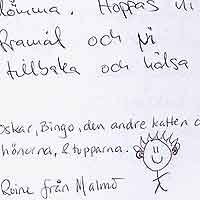 lömma. Hoppas ni
Framåt och Ni
tillbaka och hälsa
Oskar, Bingo, den andre katten o
hönorna, & tupparna.
Roine från Malmö